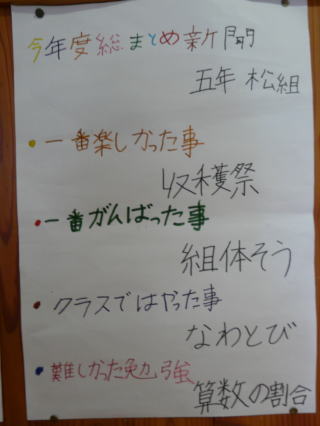 今年度総まとめ新聞
五年 松組
・一番楽しかった事
収穫祭
・一番がんばった事
組体そう
・クラスではやった事
なわとび
・難しかった勉強
算数の割合